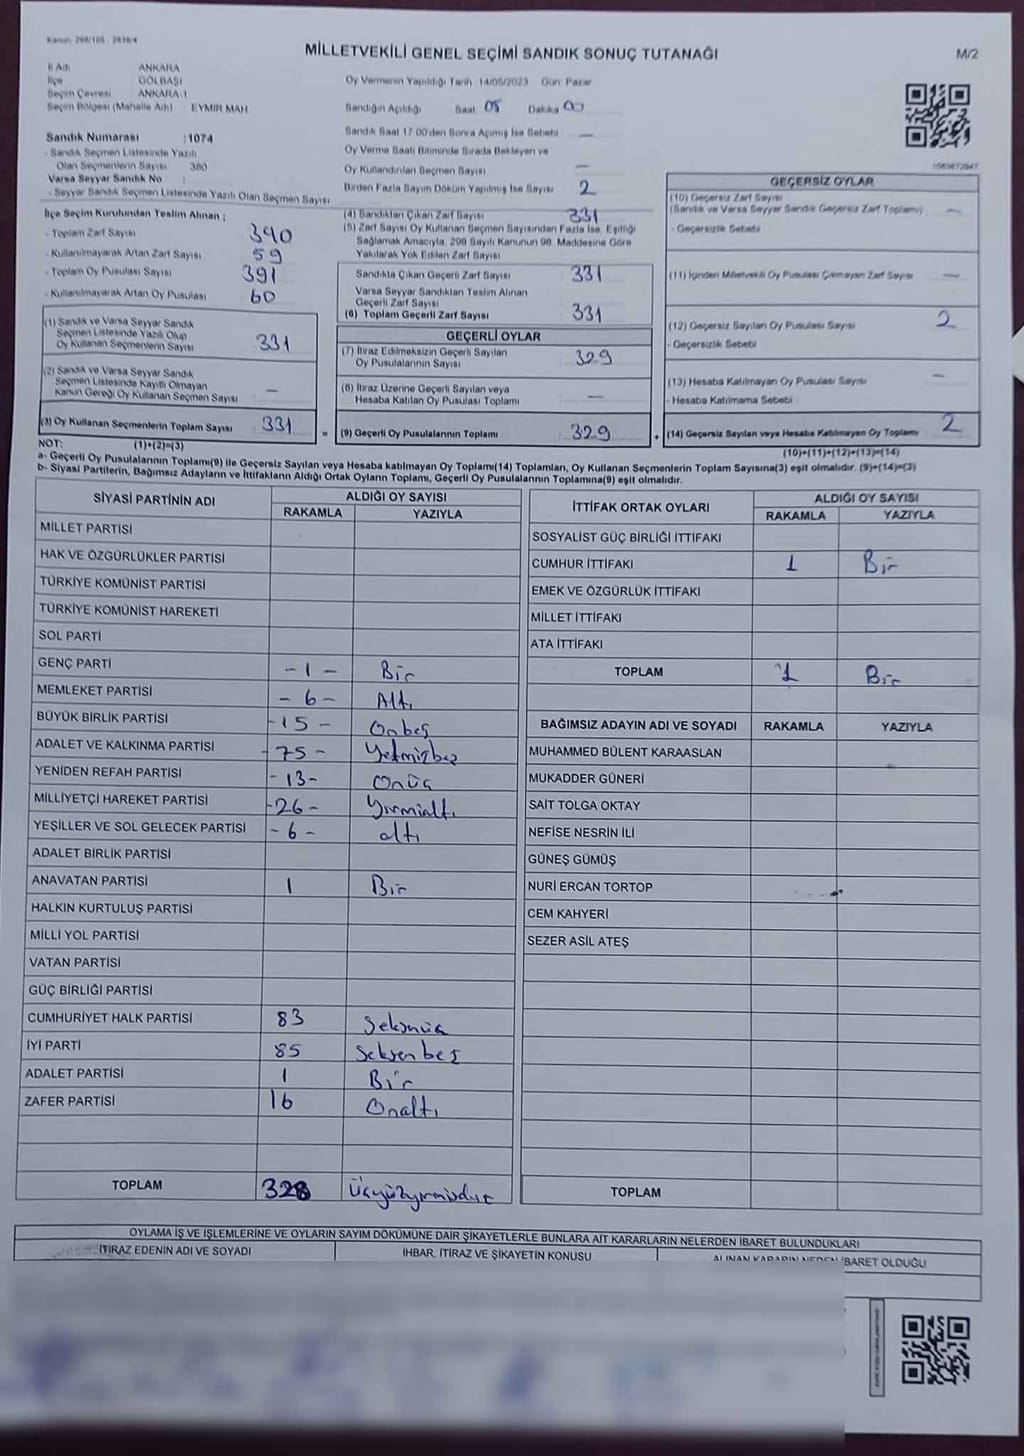 Kanun: 298/105 - 2839/4
MİLLETVEKİLİ GENEL SEÇİMİ SANDIK SONUÇ TUTANAĞI
M/2
İl Adı ANKARA
İlçe GÖLBAŞI
Seçim Çevresi ANKARA-1
Seçim Bölgesi (Mahalle Adı) : EYMİR MAH
Sandık Numarası :1074
- Sandık Seçmen Listesinde Yazılı
Olan Seçmenlerin Sayısı : 380
Varsa Seyyar Sandık No :
- Seyyar Sandık Seçmen Listesinde Yazılı Olan Seçmen Sayısı
Oy Vermenin Yapıldığı Tarih : 14/05/2023 Gün: Pazar
Sandığın Açıldığı Saat 05 Dakika 00
Sandık Saat 17:00'den Sonra Açımış İse Sebebi : —
Oy Verme Saati Bitiminde Sırada Bekleyen ve
Oy Kullandırılan Seçmen Sayısı —
Birden Fazla Sayım Döküm Yapılmış İse Sayısı 2
1583872947
İlçe Seçim Kurulundan Teslim Alınan ;
- Toplam Zarf Sayısı 390
- Kullanılmayarak Artan Zarf Sayısı 59
- Toplam Oy Pusulası Sayısı 391
- Kullanılmayarak Artan Oy Pusulası 60
(1) Sandık ve Varsa Seyyar Sandık
Seçmen Listesinde Yazılı Olup
Oy Kullanan Seçmenlerin Sayısı 331
(2) Sandık ve Varsa Seyyar Sandık
Seçmen Listesinde Kayıtlı Olmayan
Kanun Gereği Oy Kullanan Seçmen Sayısı —
(3) Oy Kullanan Seçmenlerin Toplam Sayısı 331 =
(4) Sandıktan Çıkan Zarf Sayısı 331
(5) Zarf Sayısı Oy Kullanan Seçmen Sayısından Fazla İse, Eşitliği
Sağlamak Amacıyla, 298 Sayılı Kanunun 98. Maddesine Göre
Yakılarak Yok Edilen Zarf Sayısı
Sandıkta Çıkan Geçerli Zarf Sayısı 331
Varsa Seyyar Sandıktan Teslim Alınan
Geçerli Zarf Sayısı
(6) Toplam Geçerli Zarf Sayısı 331
GEÇERLİ OYLAR
(7) İtiraz Edilmeksizin Geçerli Sayılan
Oy Pusulalarının Sayısı 329
(8) İtiraz Üzerine Geçerli Sayılan veya
Hesaba Katılan Oy Pusulası Toplamı —
(9) Geçerli Oy Pusulalarının Toplamı 329 +
GEÇERSİZ OYLAR
(10) Geçersiz Zarf Sayısı
(Sandık ve Varsa Seyyar Sandık Geçersiz Zarf Toplamı) —
- Geçersizlik Sebebi
(11) İçinden Milletvekili Oy Pusulası Çıkmayan Zarf Sayısı —
(12) Geçersiz Sayılan Oy Pusulası Sayısı 2
- Geçersizlik Sebebi
(13) Hesaba Katılmayan Oy Pusulası Sayısı —
- Hesaba Katılmama Sebebi
(14) Geçersiz Sayılan veya Hesaba Katılmayan Oy Toplamı 2
NOT: (1)+(2)=(3) (10)+(11)+(12)+(13)=(14)
a- Geçerli Oy Pusulalarının Toplamı(9) ile Geçersiz Sayılan veya Hesaba katılmayan Oy Toplamı(14) Toplamları, Oy Kullanan Seçmenlerin Toplam Sayısına(3) eşit olmalıdır. (9)+(14)=(3)
b- Siyasi Partilerin, Bağımsız Adayların ve İttifakların Aldığı Ortak Oyların Toplamı, Geçerli Oy Pusulalarının Toplamına(9) eşit olmalıdır.
SİYASİ PARTİNİN ADI ALDIĞI OY SAYISI
RAKAMLA YAZIYLA
MİLLET PARTİSİ
HAK VE ÖZGÜRLÜKLER PARTİSİ
TÜRKİYE KOMÜNİST PARTİSİ
TÜRKİYE KOMÜNİST HAREKETİ
SOL PARTİ
GENÇ PARTİ -1- Bir
MEMLEKET PARTİSİ -6- Altı
BÜYÜK BİRLİK PARTİSİ -15- Onbeş
ADALET VE KALKINMA PARTİSİ -75- Yetmişbeş
YENİDEN REFAH PARTİSİ -13- Onüç
MİLLİYETÇİ HAREKET PARTİSİ -26- Yirmialtı
YEŞİLLER VE SOL GELECEK PARTİSİ -6- altı
ADALET BİRLİK PARTİSİ
ANAVATAN PARTİSİ 1 Bir
HALKIN KURTULUŞ PARTİSİ
MİLLİ YOL PARTİSİ
VATAN PARTİSİ
GÜÇ BİRLİĞİ PARTİSİ
CUMHURİYET HALK PARTİSİ 83 Seksnüç
İYİ PARTİ 85 Seksenbeş
ADALET PARTİSİ 1 Bir
ZAFER PARTİSİ 16 Onaltı
TOPLAM 328
İTTİFAK ORTAK OYLARI ALDIĞI OY SAYISI
RAKAMLA YAZIYLA
SOSYALİST GÜÇ BİRLİĞİ İTTİFAKI
CUMHUR İTTİFAKI 1 Bir
EMEK VE ÖZGÜRLÜK İTTİFAKI
MİLLET İTTİFAKI
ATA İTTİFAKI
TOPLAM 1 Bir
BAĞIMSIZ ADAYIN ADI VE SOYADI RAKAMLA YAZIYLA
MUHAMMED BÜLENT KARAASLAN
MUKADDER GÜNERİ
SAİT TOLGA OKTAY
NEFİSE NESRİN İLİ
GÜNEŞ GÜMÜŞ
NURİ ERCAN TORTOP
CEM KAHYERİ
SEZER ASİL ATEŞ
TOPLAM
OYLAMA İŞ VE İŞLEMLERİNE VE OYLARIN SAYIM DÖKÜMÜNE DAİR ŞİKAYETLERLE BUNLARA AİT KARARLARIN NELERDEN İBARET BULUNDUKLARI
İTİRAZ EDENİN ADI VE SOYADI İHBAR, İTİRAZ VE ŞİKAYETİN KONUSU ALINAN KARARIN NEDEN İBARET OLDUĞU